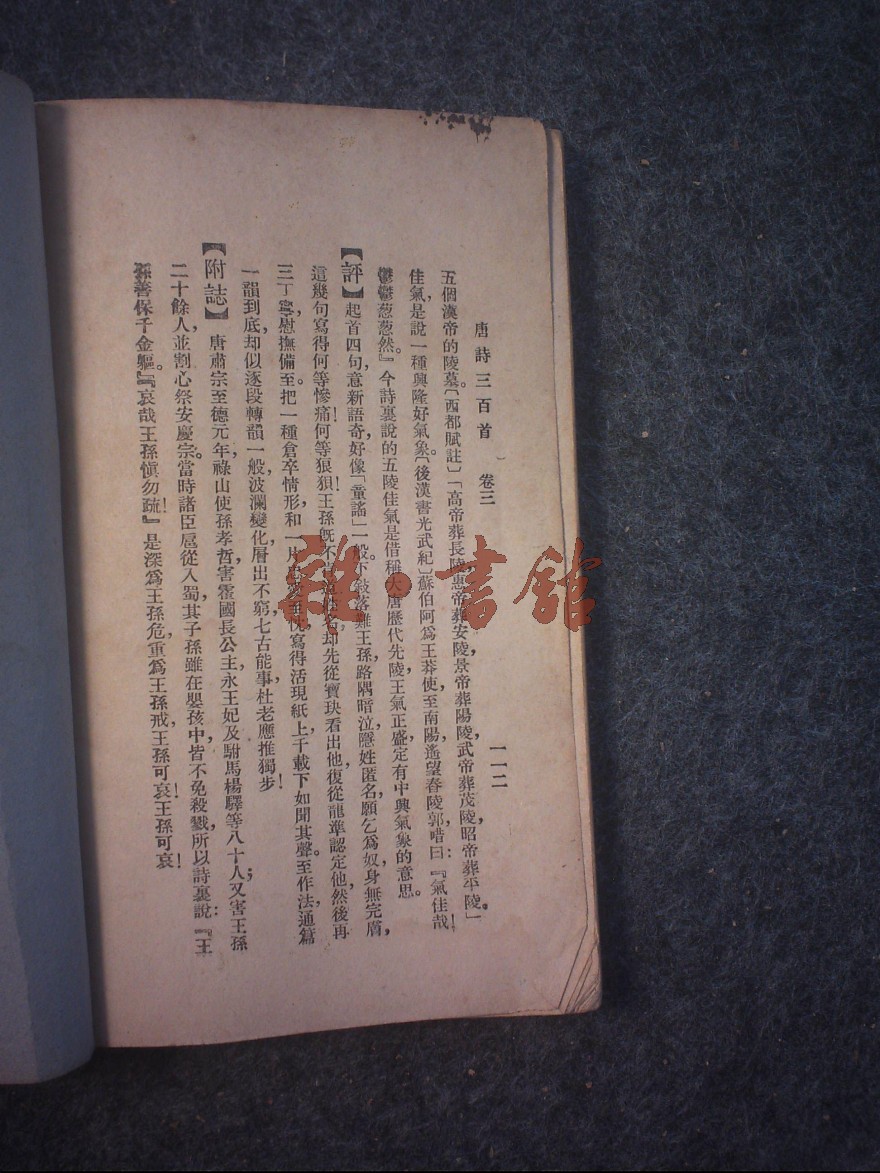 唐詩三百首　卷三　一一二
五個漢帝的陵墓〔西都賦註〕「高帝葬長陵，惠帝葬安陵，景帝葬陽陵，武帝葬茂陵，昭帝葬平陵。」
佳氣，是說一種興隆好氣象〔後漢書光武紀〕蘇伯阿爲王莽使至南陽，遙望舂陵郭，唶曰：『氣佳哉！
鬱鬱葱葱然。』今詩裏說的五陵佳氣是借稱大唐歷代先陵王氣正盛定有中興氣象的意思。
【評】起首四句，意新語奇，好像「童謠」一般。下敍落難王孫，路隅暗泣，隱姓匿名，願乞爲奴，身無完膚，
這幾句寫得何等慘痛！何等狼狽！王孫旣不却先從寶玦看出他，復從龍準認定他，然後再
三丁寧，慰撫備至。把一種倉卒情形和一片寫得活現紙上，千載下如聞其聲。至作法通篇
一韻到底，却似逐段轉韻一般，波瀾變化，層出不窮，七古能事，杜老應推獨步！
【附誌】唐肅宗至德元年，祿山使孫孝哲害霍國長公主，永王妃及駙馬楊驛等八十人；又害王孫
二十餘人，並割心祭安慶宗。當時諸臣扈從入蜀，其子孫雖在嬰孩中，皆不免殺戮，所以詩裏說：『王
孫善保千金軀。』『哀哉王孫愼勿疏！』是深爲王孫危，重爲王孫戒，王孫可哀！王孫可哀！
雜·書館